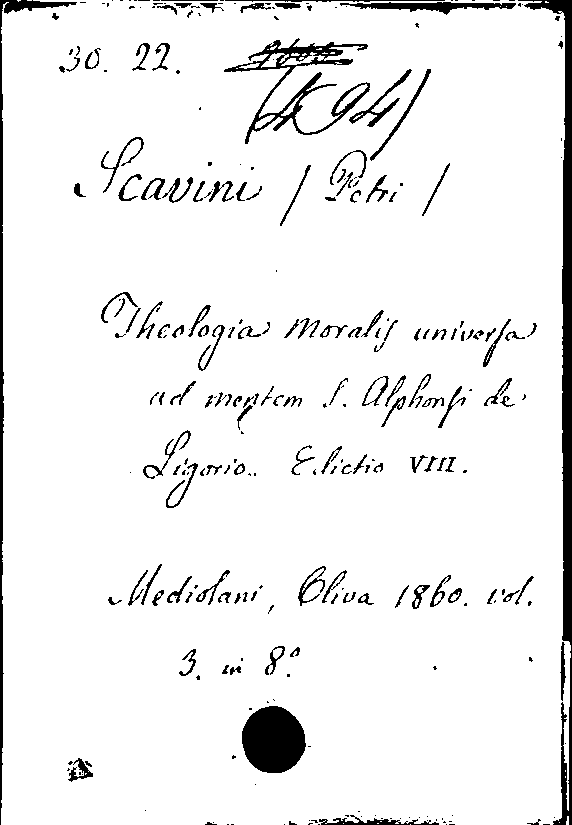 30. 22.
(494)
Scavini / Petri /
Theologia Moralis universa
ad mentem S. Alphonsi de
Ligorio. Editio VIII.
Mediolani, Oliva 1860. vol.
3. in 8.º